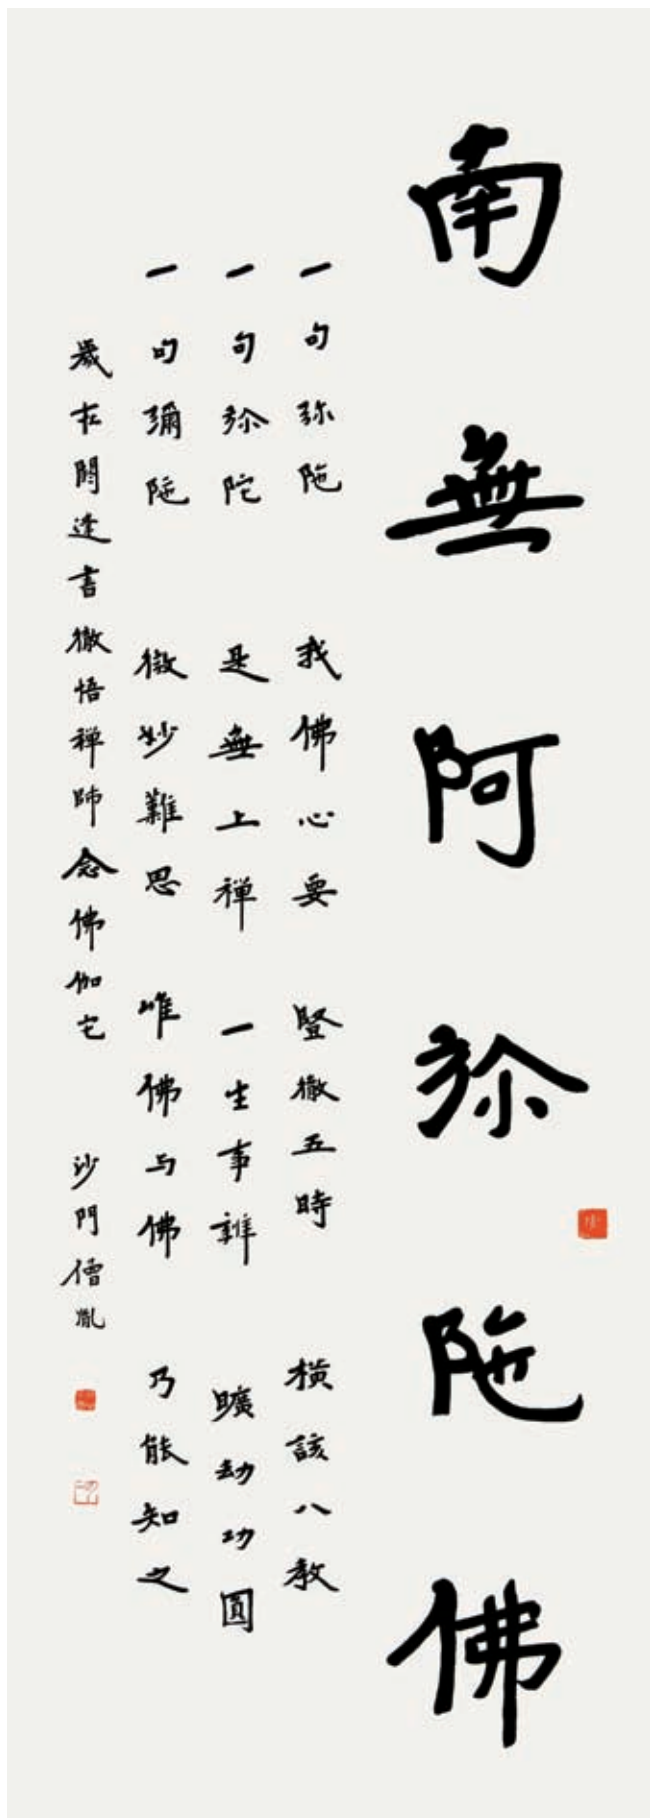 南無阿弥陁佛
一句弥陁 我佛心要 竪徹五時 橫該八教
一句弥陀 是無上禅 一生事辦 曠劫功圓
一句彌陁 微妙難思 唯佛与佛 乃能知之
歲在閼逢書徹悟禅師念佛伽它 沙門僧胤